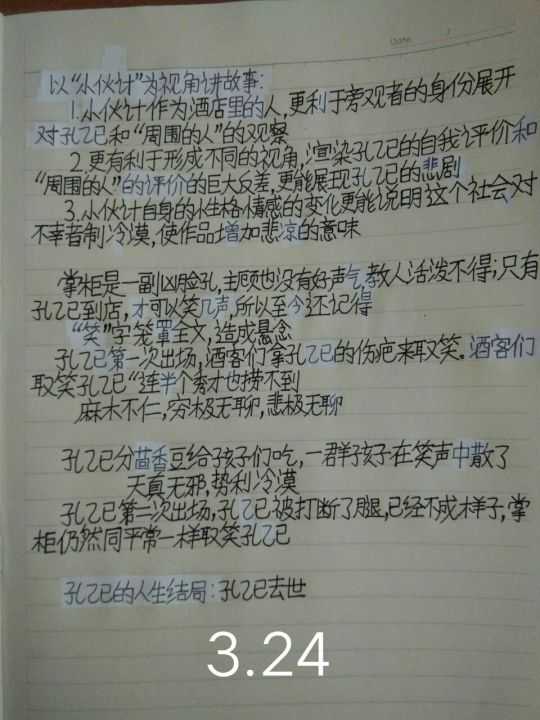 以“小伙计”为视角讲故事:
1.小伙计作为酒店里的人,更利于旁观者的身份展开
对孔乙己和“周围的人”的观察
2.更有利于形成不同的视角,渲染孔乙己的自我评价和
“周围的人”的评价的巨大反差,更能展现孔乙己的悲剧
3.小伙计自身的性格情感的变化更能说明这个社会对
不幸者制冷漠,使作品增加悲凉的意味
掌柜是一副凶脸孔,主顾也没有好声气,教人活泼不得;只有
孔乙己到店,才可以笑几声,所以至今还记得
“笑”字笼罩全文,造成悬念
孔乙己第一次出场,酒客们拿孔乙己的伤疤来取笑。酒客们
取笑孔乙己“连半个秀才也捞不到
麻木不仁,穷极无聊,悲极无聊
孔乙己分茴香豆给孩子们吃,一群孩子在笑声中散了
天真无邪,势利冷漠
孔乙己第二次出场,孔乙己被打断了腿,已经不成样子,掌
柜仍然同平常一样取笑孔乙己
孔乙己的人生结局:孔乙己去世
3.24